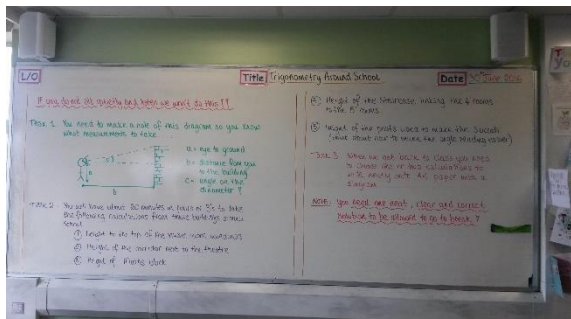 L/O
Title Trigonometry Around School
Date 30th June 2016
If you do not sit quietly and listen we won't do this!!
Task 1: You need to make a note of this diagram so you know
what measurements to take
a = eye to ground
b = distance from you
to the building
c = angle on the
clinometer?
b
Task 2: You will have about 20 minutes in pairs or 3's to take
the following measurements from these buildings around
school
① Height to the top of the music room windows
② Height of the next to the theatre
③ Height of block
④ Height of the staircase linking the rooms
to the rooms
⑤ Height of the posts used to mark the
(think about how to the angle reading)
Task 3: When we get back to class you need
to calculations to
neatly onto A4 paper with a
diagram
NOTE: You need one neat, clear and correct
solution to be allowed to go to break!